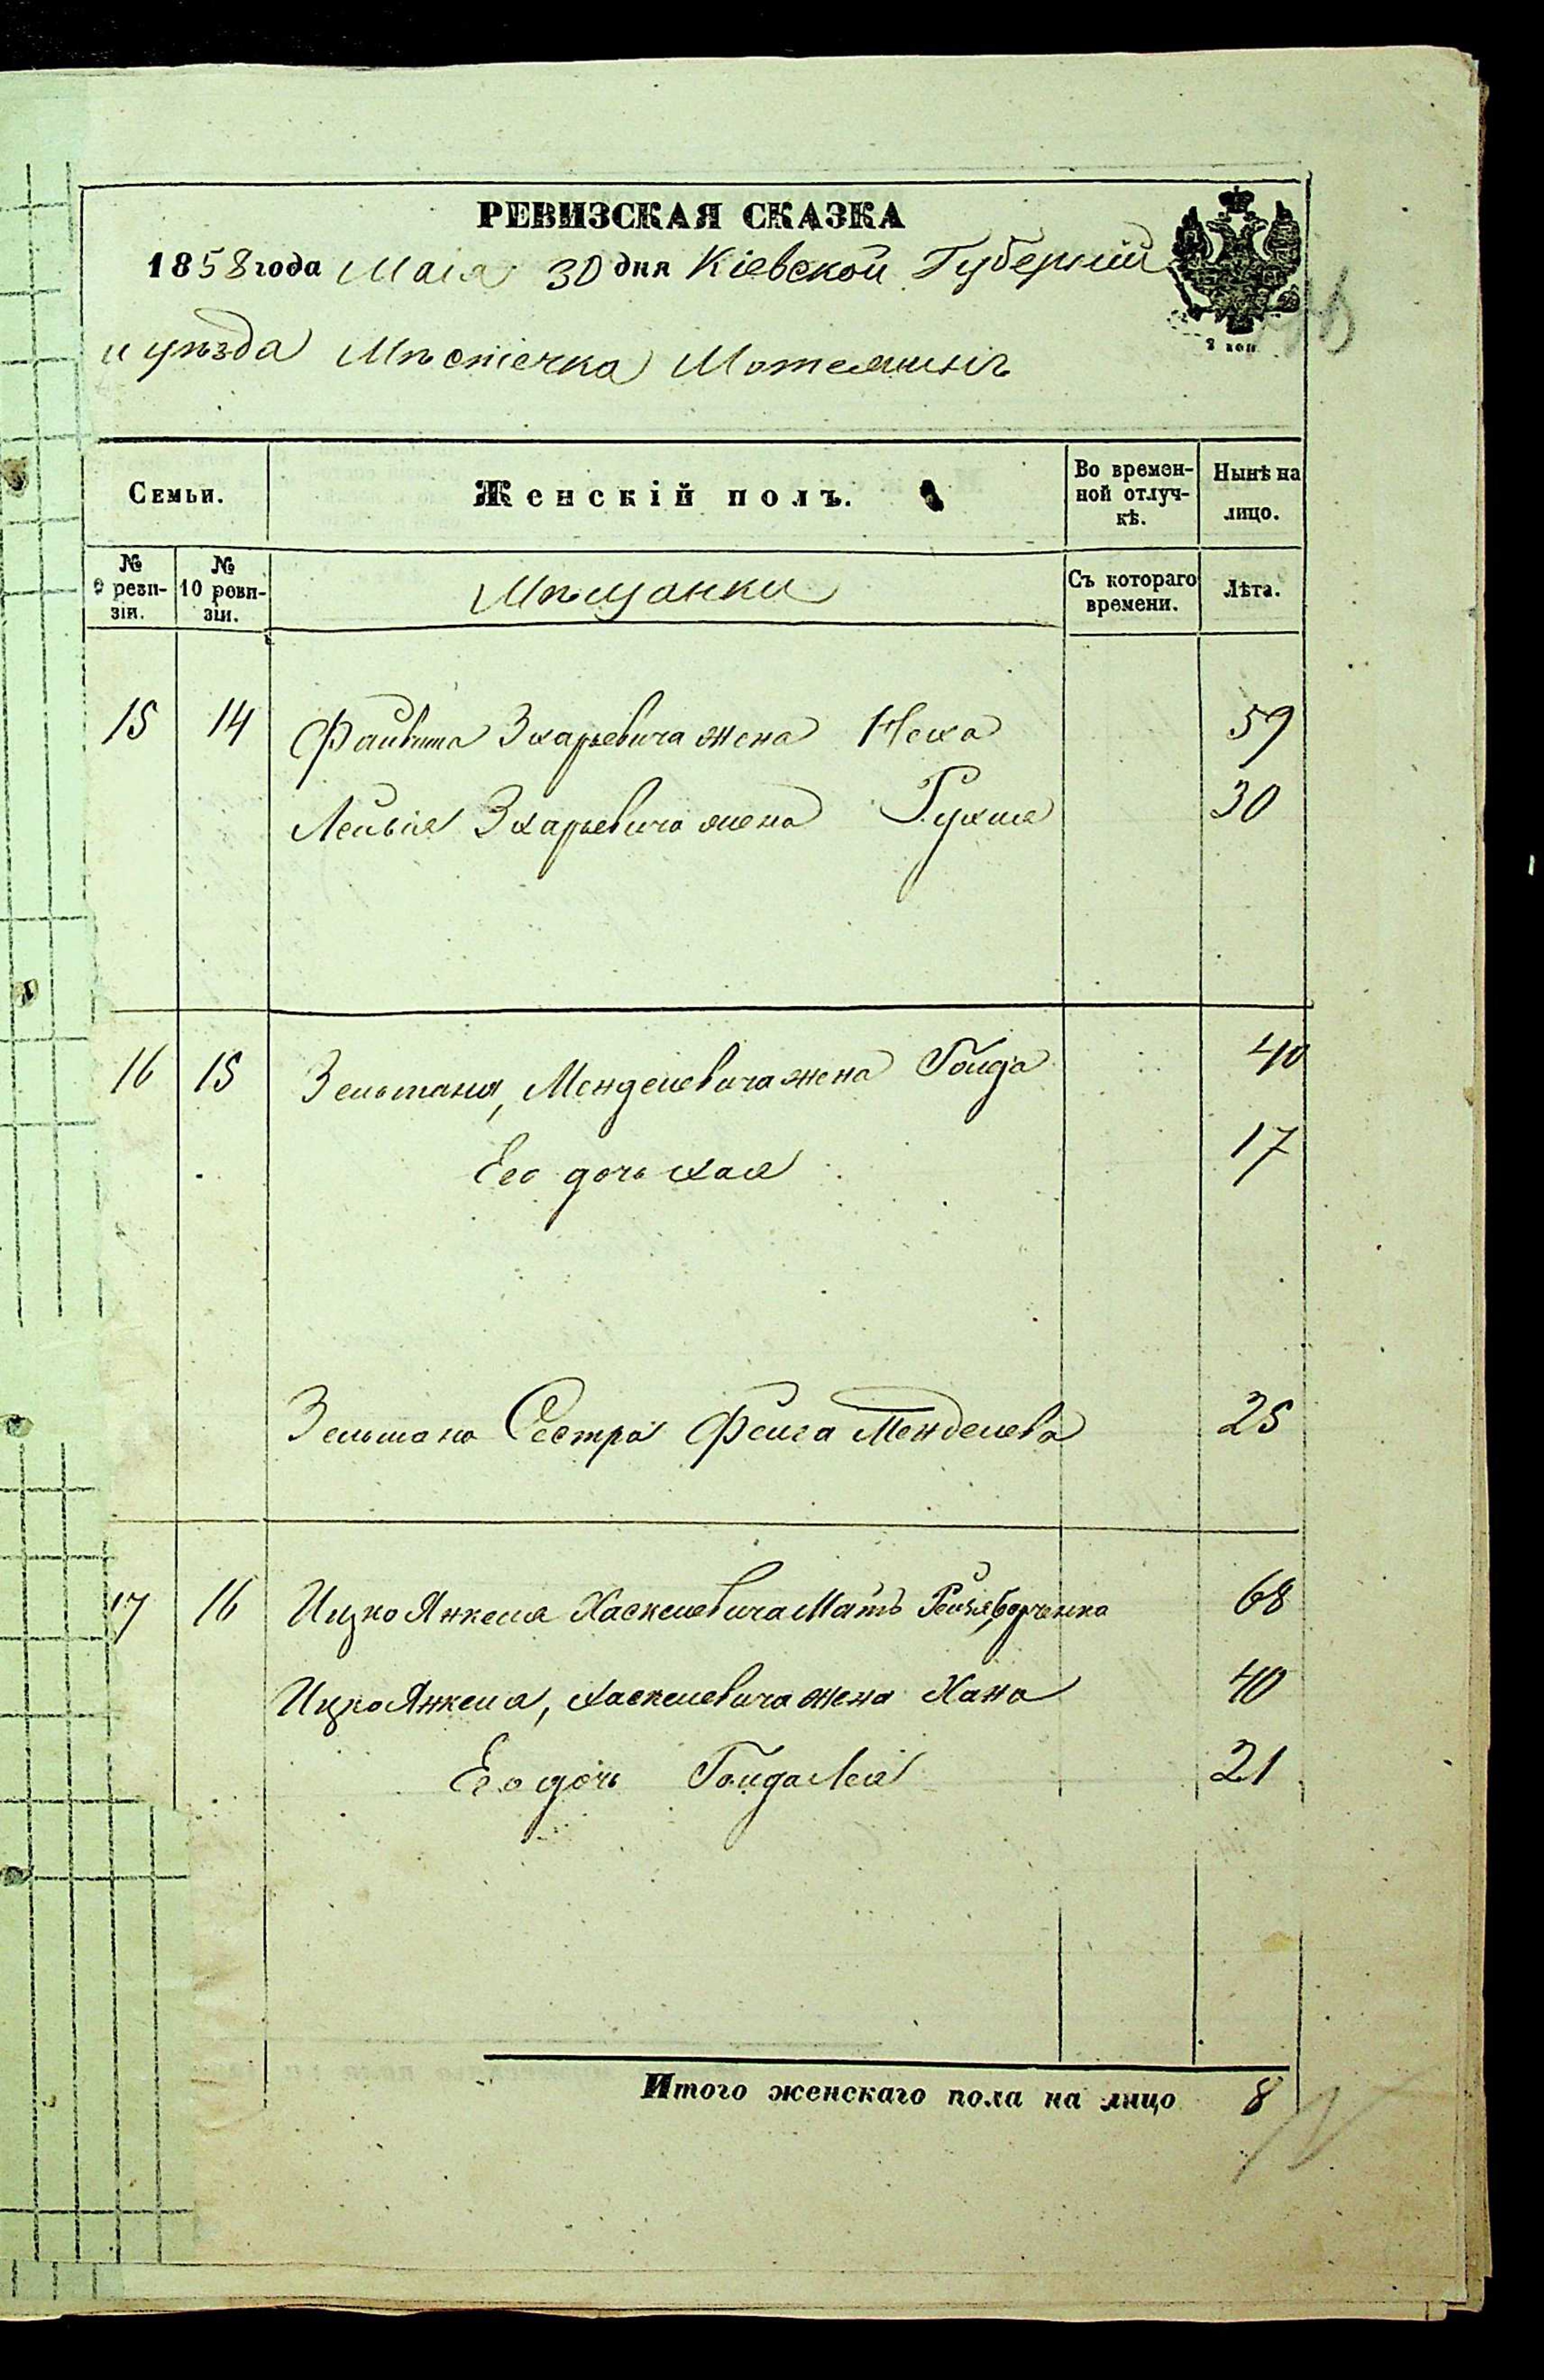 РЕВИЗСКАЯ СКАЗКА
1858 года Маія 30 дня Кіевской Губерніи
и уѣзда Мѣстечка Мотежинъ
2 коп.
Семьи.
Женскій полъ.
Во времен-
ной отлуч-
кѣ.
Нынѣ на
лицо.
№
9 реви-
зіи.
№
10 реви-
зіи.
Мѣщанки
Съ котораго
времени.
Лѣта.
15 14 Файвиша Зхарьевича жена Неха 59
Лейбы Зхарьевича жена Рухля 30
16 15 Зельмана, Менделевича жена Гольда 40
Его дочь Хая 17
Зельмана Сестра Фейга Менделева 25
17 16 Ицко Янкеля Хаскелевича Мать 68
Ицко Янкеля, Хаскелевича жена Хана 40
Его дочь Гольда Лея 21
Итого женскаго пола на лицо 8